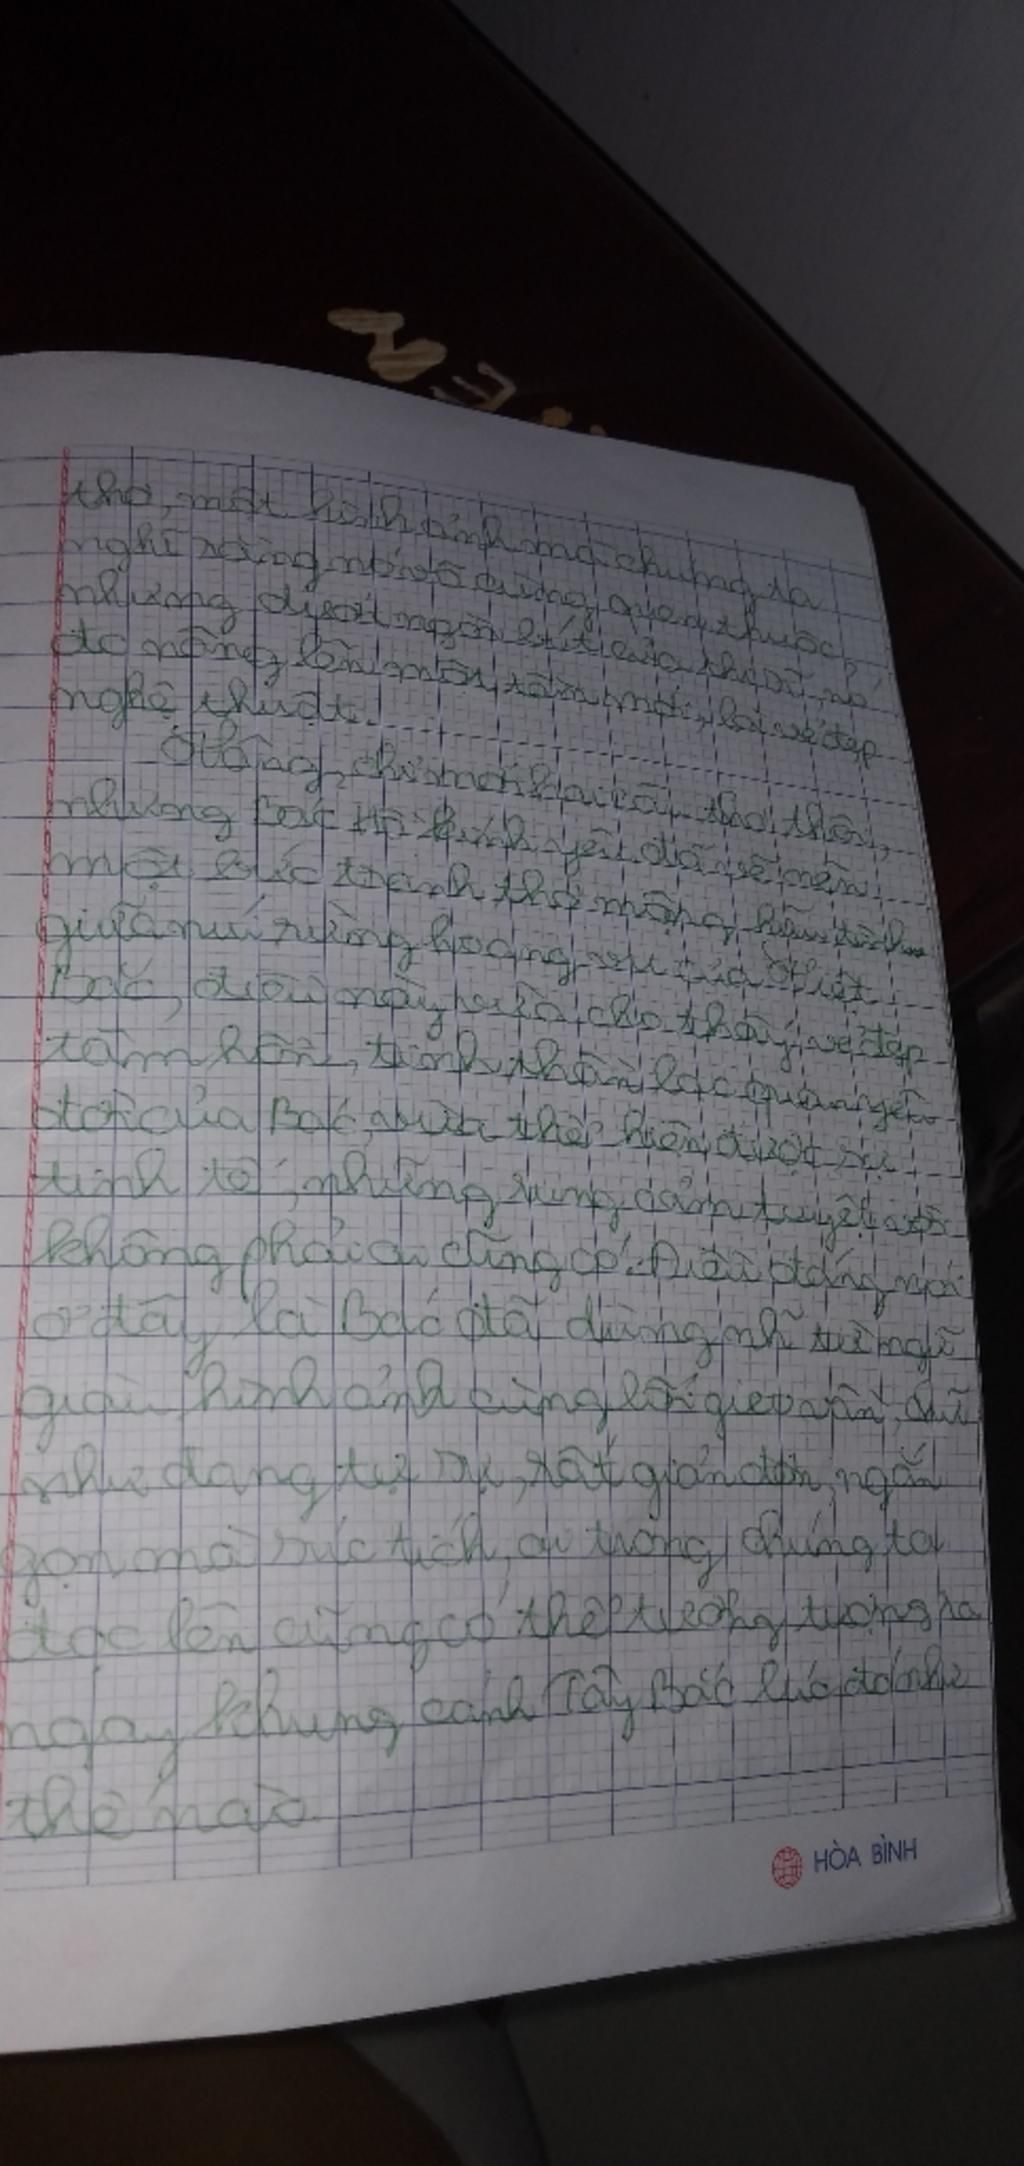 thơ, một hình ảnh mà chúng ta
nghĩ rằng nó vô cùng quen thuộc,
nhưng dưới ngòi bút của thi sĩ, nó
đc nâng lên một tầm mới, là vẻ đẹp
nghệ thuật.
Vâng, chỉ mới hai câu thơ thôi,
nhưng Bác Hồ kính yêu đã vẽ nên
một bức tranh thơ mộng, hữu tình
giữa núi rừng hoang vu của Việt
Bắc, điều này vừa cho thấy vẻ đẹp
tâm hồn, tinh thần lạc quan yêu
đời của Bác, vừa thể hiện được sự
tinh tế, những rung cảm tuyệt vời
không phải ai cũng có. Điều đáng nói
ở đây là Bác đã dùng từ ngữ
giàu hình ảnh cùng lối gieo vần,
như đang tự sự, rất giản đơn, ngắn
gọn mà súc tích, ai trong chúng ta
đọc lên cũng có thể tưởng tượng ra
ngay khung cảnh Tây Bắc lúc đó như
thế nào.
HÒA BÌNH